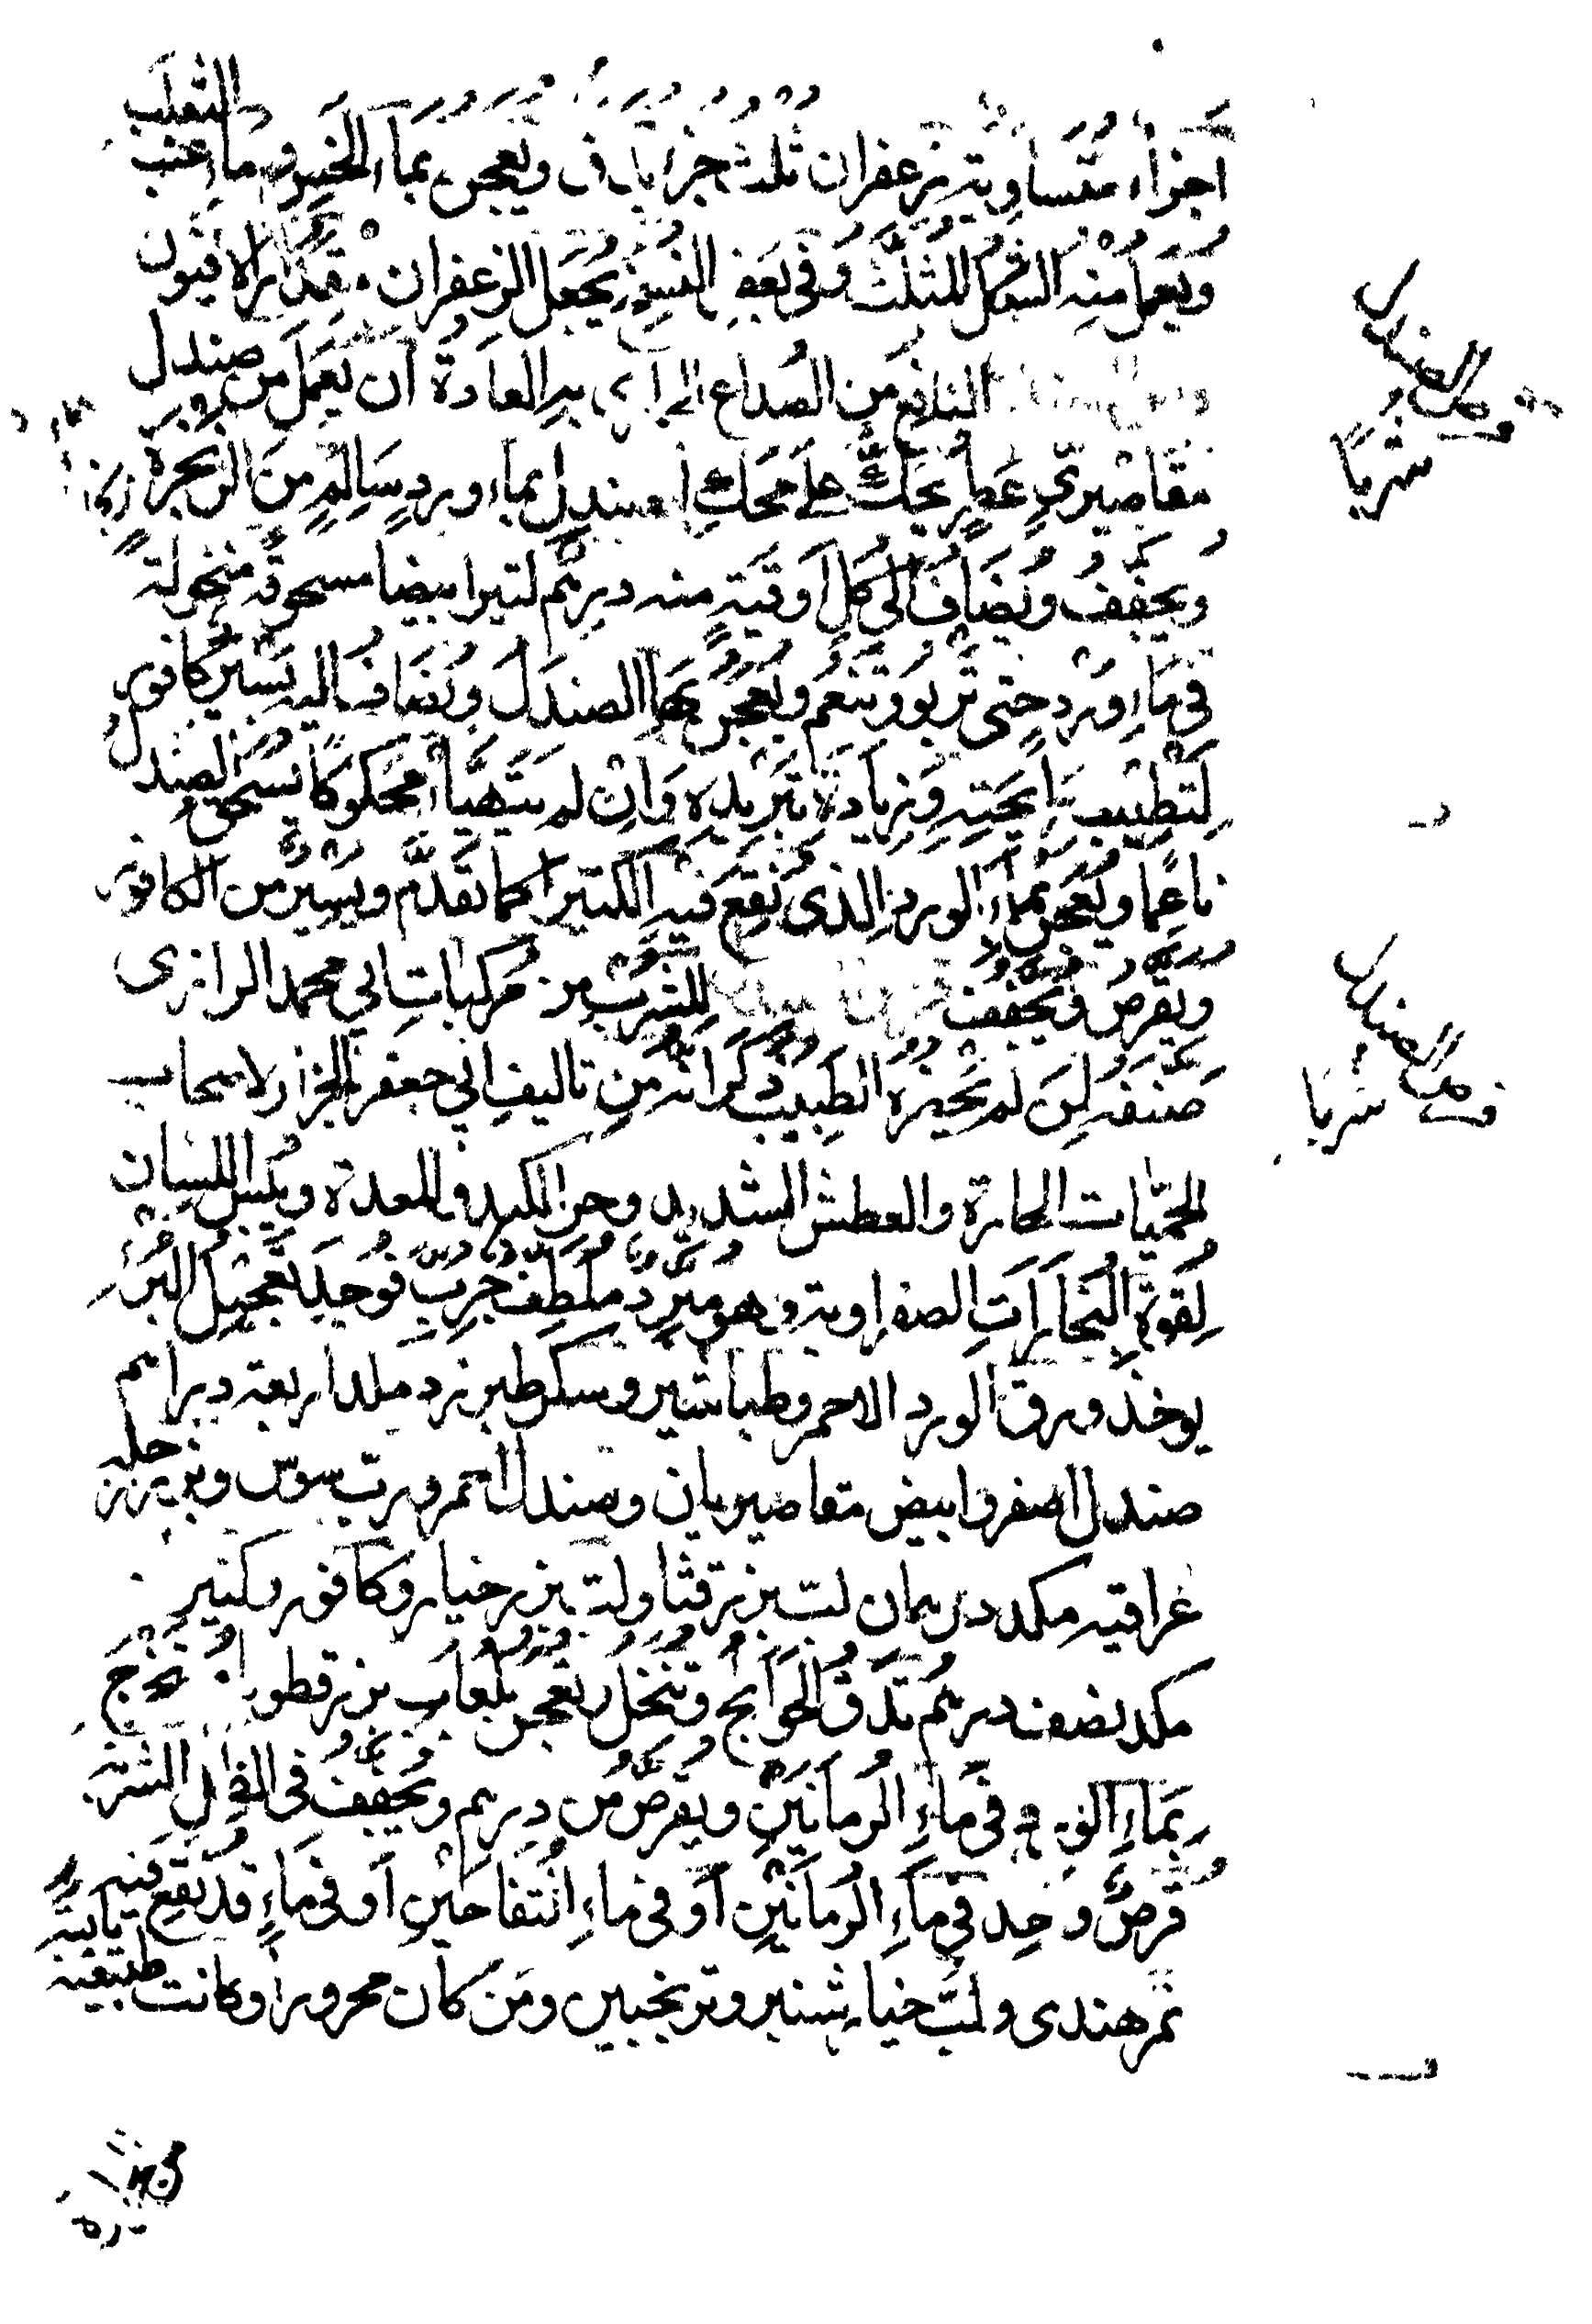 اجزاء متساوية زعفران ثلث جزء يداف ويعجن بماء الخس وماء عنب الثعلب
ويعمل منه الشكل المثلث وفى بعض النسخ يجعل الزعفران مقدار الافيون
النافع من الصداع الجارى به العادة ان يعمل من صندل
مقاصيرى عطر يحك على محك الصندل بماء ورد سالم من الزنجرة
ويجفف ويضاف الى كل اوقية منه درهم كتيرا بيضا مسحوقة منخولة
فى ماء ورد حتى تربو وتنعم ويعجن بها الصندل ويضاف اليه يسير كافور
لتطييب رايحته وزيادة تبريده وان لم يتهيأ محكوكا يسحق الصندل
ناعما ويعجن بماء الورد الذى نقع فيه الكتيرا كما تقدم ويسير من الكافور
ويقرص ويجفف للشرب من مركبات ابي محمد الرازى
صنفه لمن لم يحضره الطبيب ذكر انه من تاليف ابي جعفر الجزار لاصحاب
الحميات الحارة والعطش الشديد وحر الكبد والمعدة ويبس اللسان
لقوة البخارات الصفراوية وهو مبرد ملطف جرب فوجد تعجيل البرء
يوخذ ورق الورد الاحمر وطباشير وسكر طبرزد من كل واحد اربعة دراهم
صندل اصفر وابيض مقاصيريان وصندل احمر ورب سوس وبزر رجله
عراقيه مكد درهمان لب بزر قثا ولب بزر خيار وكافور وكثير
مكد نصف درهم تدق الحوايج وتنخل وتعجن بلعاب بزر قطونا تخرج
بماء الورد وفى ماء الرمانين ويقرص من درهم ويجفف فى الظل الشربة
قرص وحد فى ماء الرمانين او فى ماء التفاحين او فى ماء قد نقع فيه
تمر هندى ولب خيار شنبر وترنجبين ومن كان محرورا وكانت طبيعته يابسة
قرص الصندل
شربا
قرص الصندل
شربا